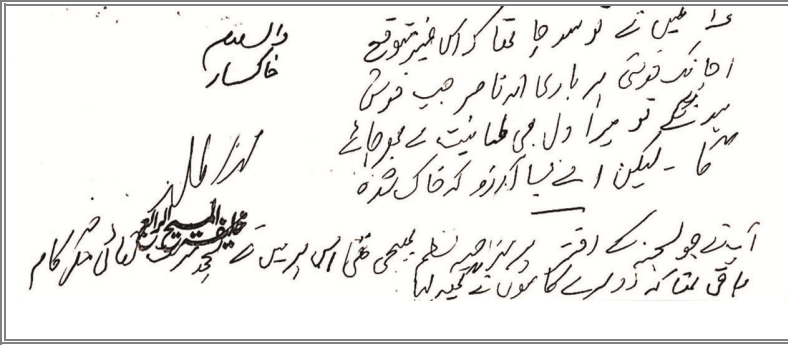 میں نے تو سوچا تھا کہ اس غیر متوقع
اچانک خوشی پر باری اور ناصر جب خوش
ہوں گے تو میرا دل بھی طمانیت سے بھر جائے
گا - لیکن اے بسا آرزو کہ خاک شدہ
والسلام
خاکسار
مرزا طاہر
خلیفۃ المسیح الرابع
آپ نے جو لجنہ کے دفتر پر مزاحیہ نظم بھیجی تھی اس پر میں نے کچھ لگائی مگر کام
باقی تھا کہ دوسرے کاموں نے گھیر لیا